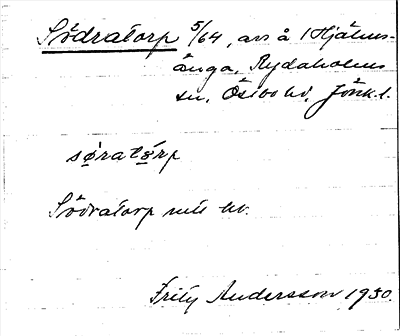 Södratorp 5/64, avs å 1 Hjälms-
ånga, Rydaholms
sn, Östbo hd, Jönk. l.
søratǫ́rp
Södratorp nuti hd.
Fritz Andersson 1930.